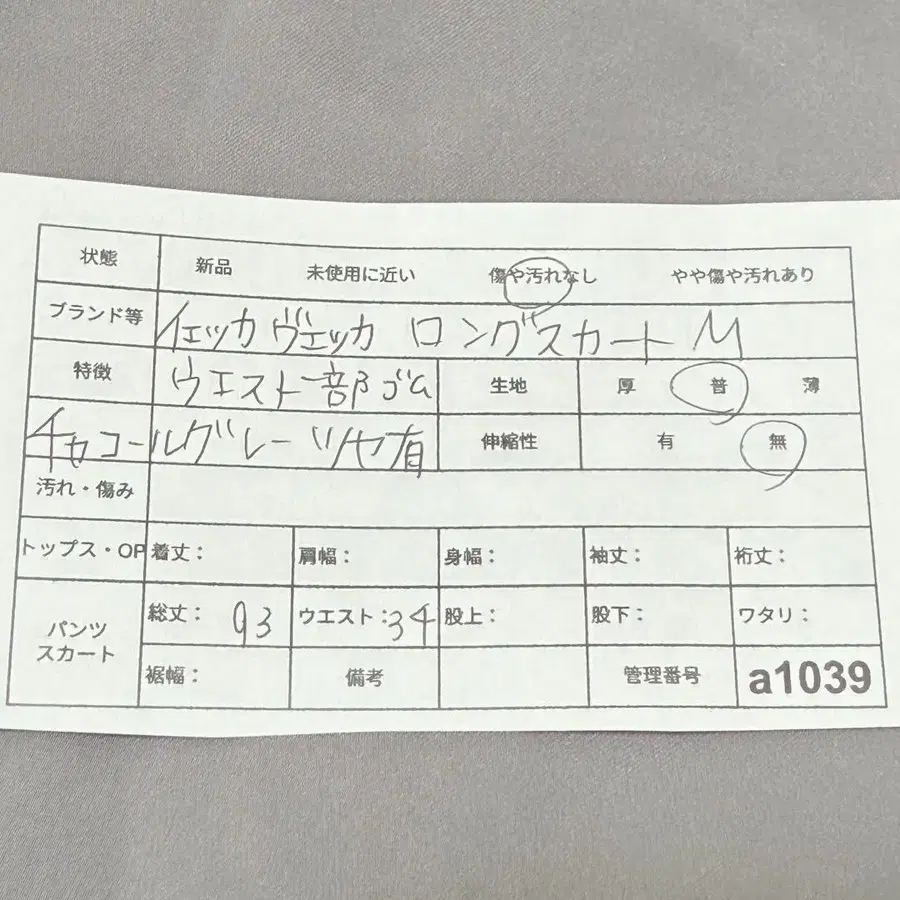 状態 新品 未使用に近い 傷や汚れなし やや傷や汚れあり
ブランド等 イェッカヴェッカ ロングスカート M
特徴 ウエスト部ゴム 生地 厚 普 薄
チャコールグレー ツヤ有 伸縮性 有 無
汚れ・傷み
トップス・OP 着丈: 肩幅: 身幅: 袖丈: 裄丈:
パンツ スカート 総丈: 93 ウエスト: 34 股上: 股下: ワタリ:
裾幅: 備考 管理番号 a1039